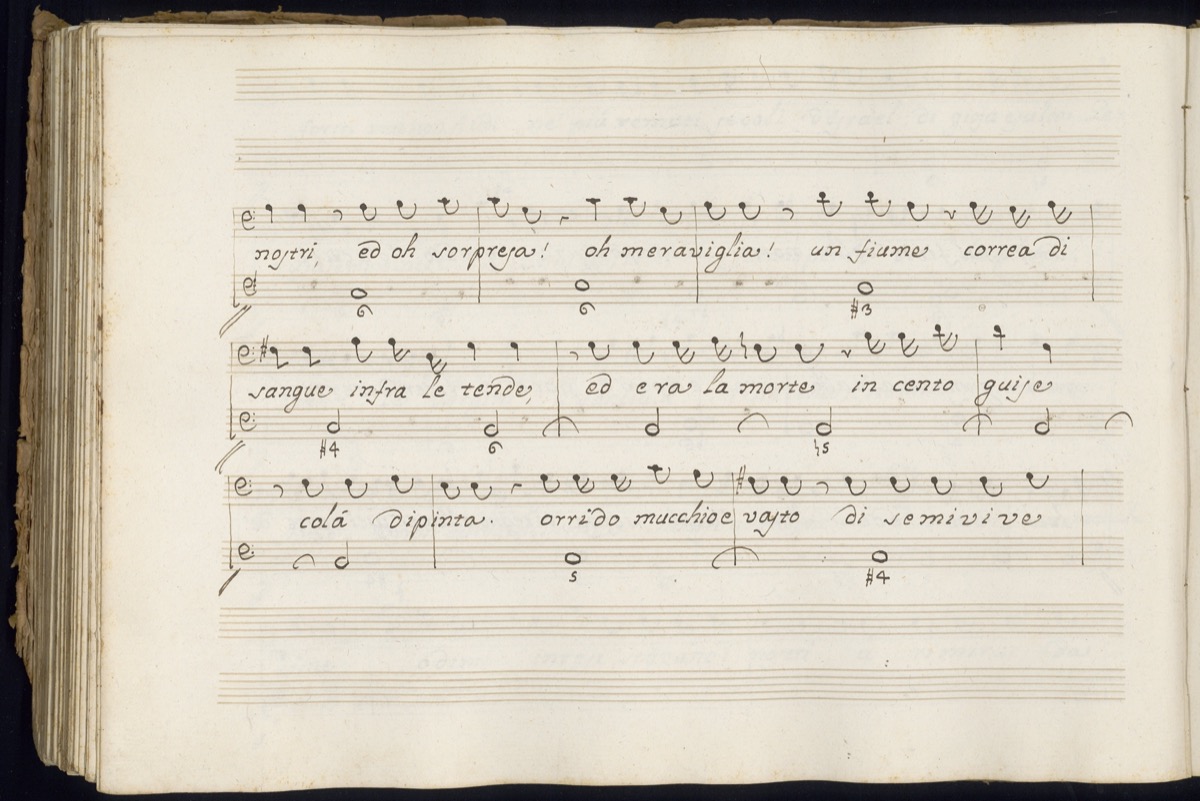 nostri, ed oh sorpresa! oh meraviglia! un fiume correa di
6 6 #3
sangue infra le tende, ed era la morte in cento guise
#4 6 ♮5
colá dipinta. orrido mucchio e vasto di semivive
5 #4